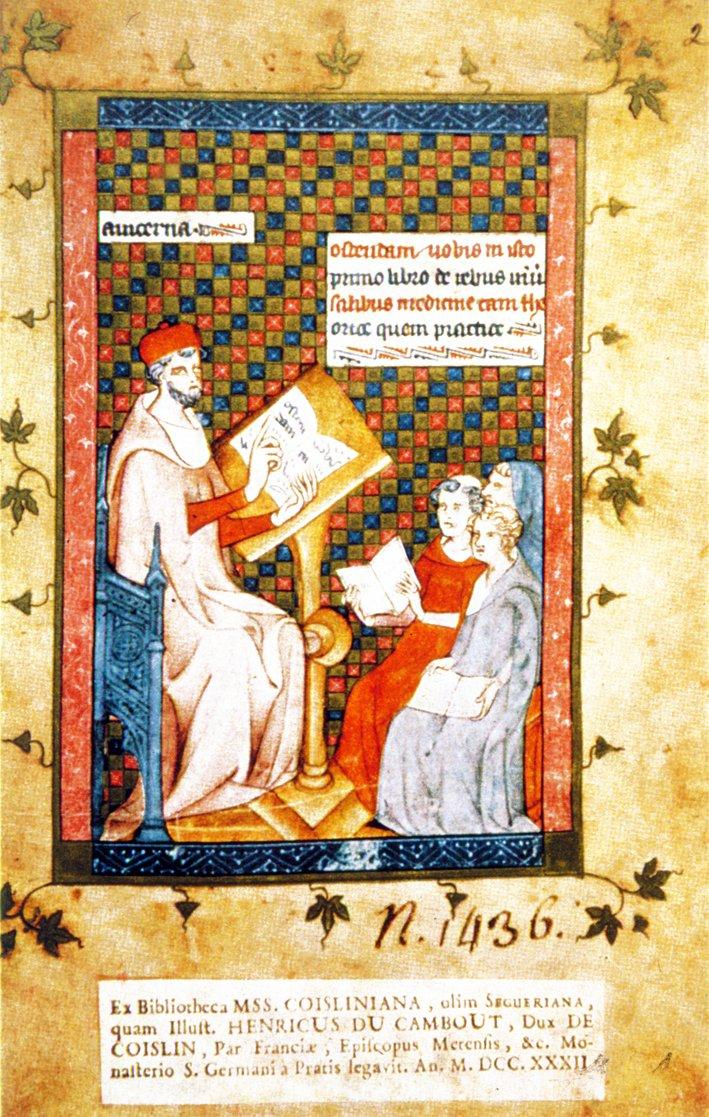 2
auicenna.
ostendam uobis in isto
primo libro de rebus uniu
salibus medicine tam the
orice quem practice
N. 1436.
Ex Bibliotheca MSS. COISLINIANA, olim SEGUERIANA,
quam Illust. HENRICUS DU CAMBOUT, Dux DE
COISLIN, Par Franciæ, Episcopus Metensis, &c. Mo-
nasterio S. Germani à Pratis legavit. An. M. DCC. XXXII.